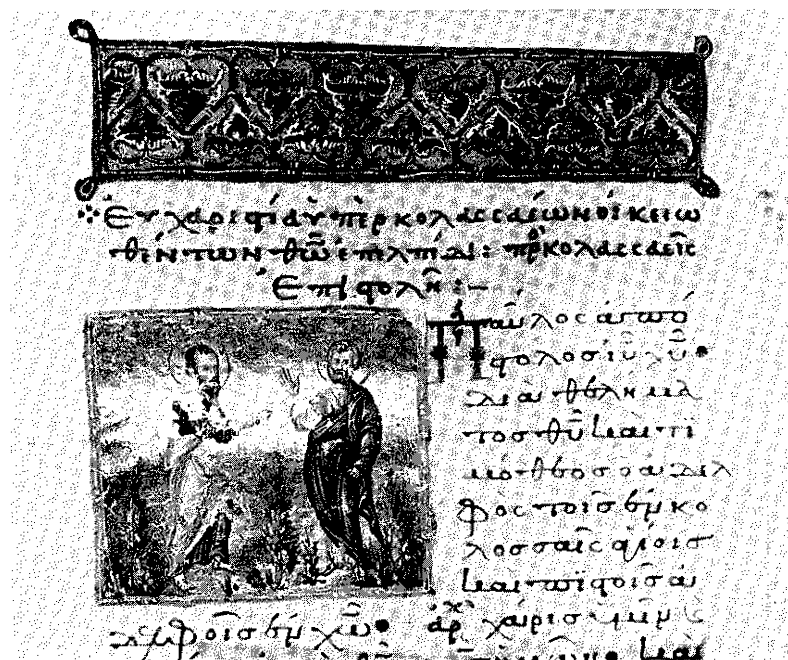 Εὐχαριστία ὑπὲρ κολασσαέων οἰκειω
θέντων θῶ ἐπελπίδι: πρ κολασσαεῖς
Ἐπιστολὴ :–
Παῦλος ἀπό
στολος ἰῦ χῦ
διὰ θελήμα
τος θῦ καὶ τι
μόθεος ὁ ἀδελ
φὸς τοῖς ἐν κο
λοσσαῖς ἁγίοις
καὶ πϊστοῖς ἀ
δελφοῖς ἐν χῶ· ἀρχ χάρις ὑμῖν
καὶ